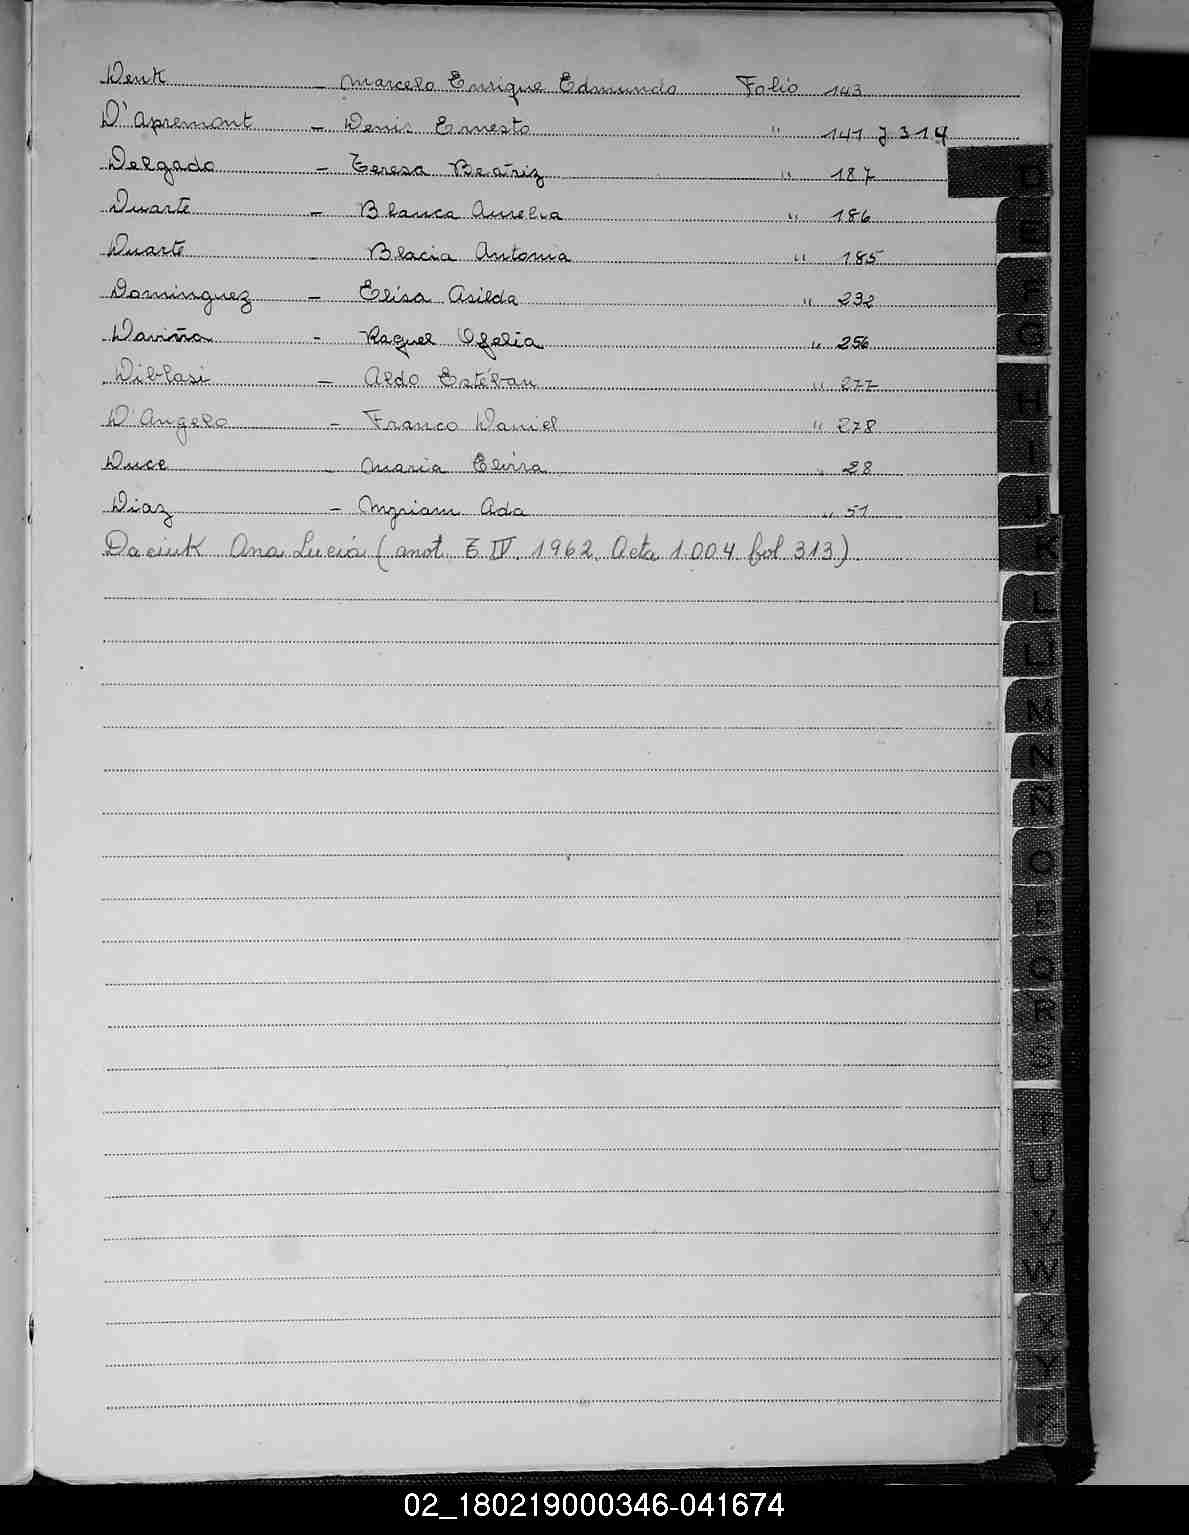 Denk - Marcelo Enrique Edmundo Folio 143
D'apremont - Denis Ernesto " 141 y 314
Delgado - Teresa Beatriz " 187
Duarte - Blanca Aurelia " 186
Duarte - Blacia Antonia " 185
Dominguez - Elisa Asilda " 232
Daviña - Raquel Ofelia " 256
Diblasi - Aldo Estéban " 277
D'Angelo - Franco Daniel " 278
Duce - Maria Elvira " 28
Diaz - Myriam Ada " 51
Daciuk Ana Lucía (anot. T. IV. 1962. Acta 1.004 fol 313)
D
E
F
G
H
I
J
K
L
LL
M
N
Ñ
O
P
Q
R
S
T
U
V
W
X
Y
Z
02_180219000346-041674